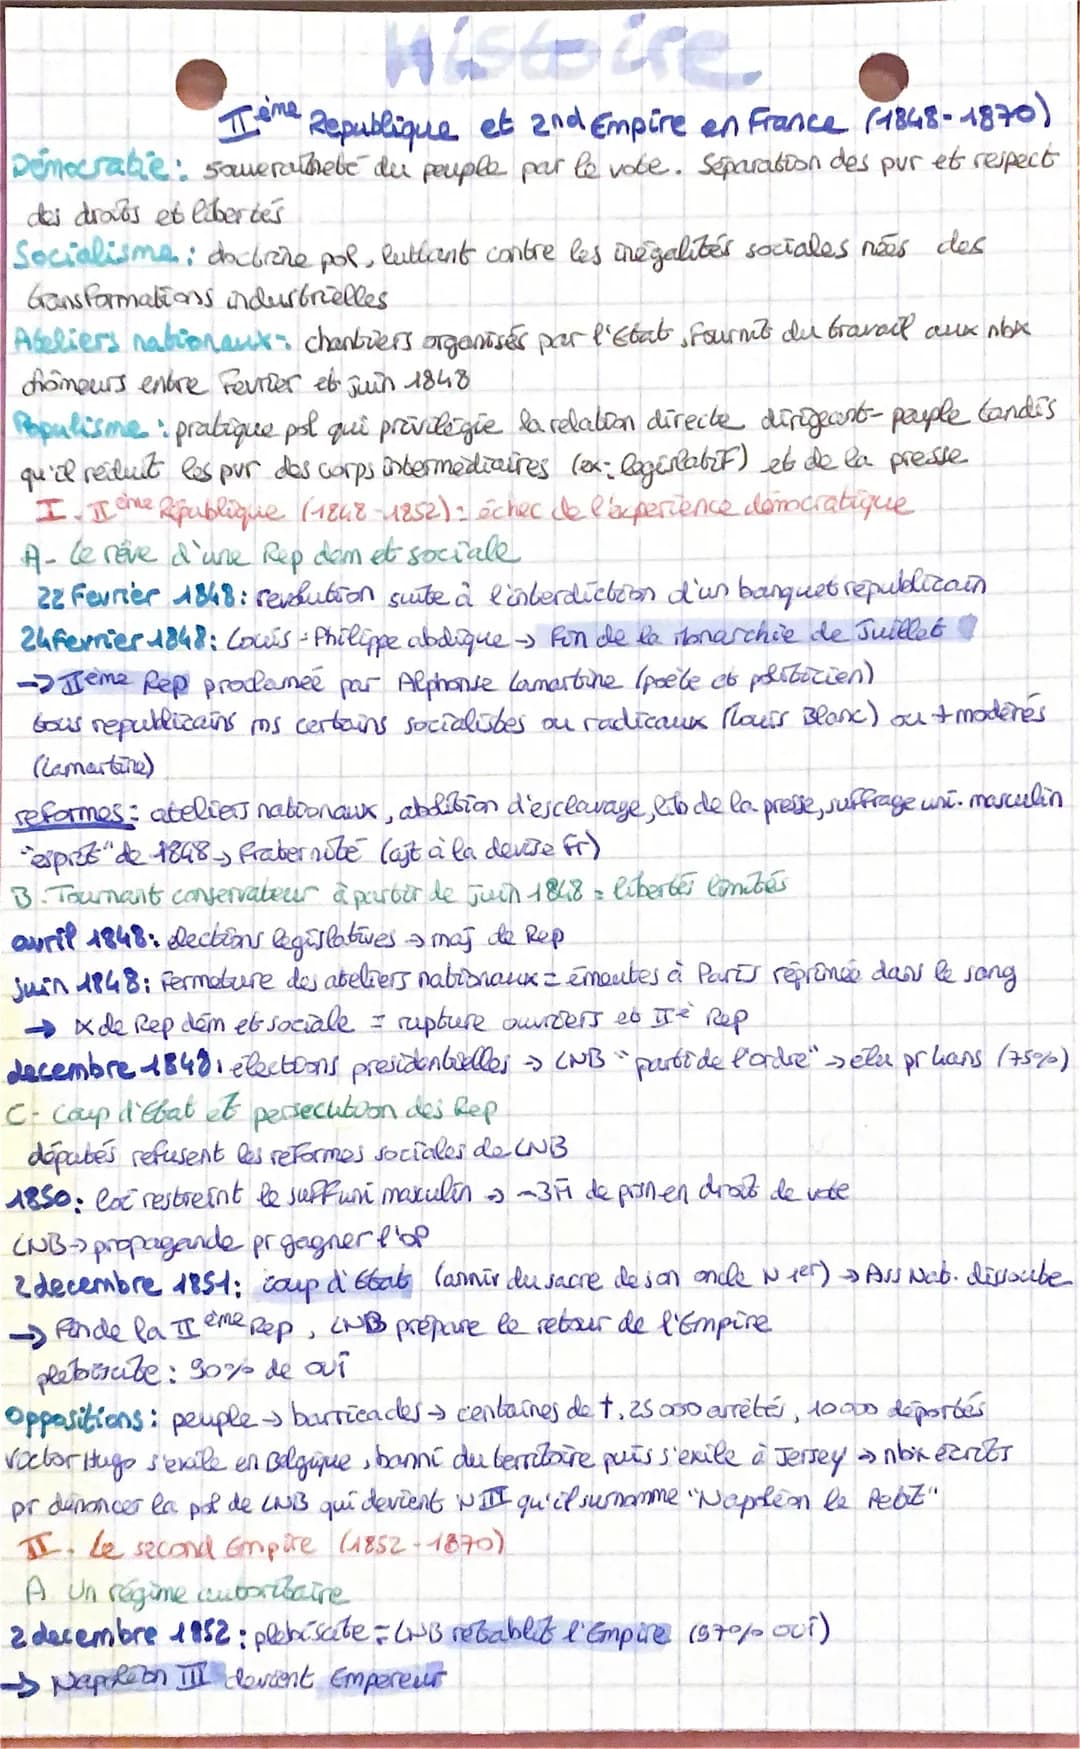 Histoire
IIème Republique et 2nd Empire en France (1848-1870)
Démocratie : souveraineté du peuple par le vote. Séparation des pvr et respect
des droits et libertés
Socialisme : doctrine pol, luttant contre les inégalités sociales nées des
transformations industrielles
Ateliers nationaux : chantiers organisés par l'Etat, fournit du travail aux nbx
chômeurs entre Février et juin 1848
Populisme : pratique pol qui privilégie la relation directe dirigeant-peuple tandis
qu'il réduit les pvr des corps intermédiaires (ex: législatif) et de la presse
I. IIème République (1848-1852) : échec de l'expérience démocratique
A- Le rêve d'une Rep dem et sociale
22 Fevrier 1848 : revolution suite à l'interdiction d'un banquet républicain
24 Fevrier 1848 : Louis-Philippe abdique → Fin de la monarchie de Juillet
→ IIème Rep proclamée par Alphonse Lamartine (poète et politicien)
tous republicains ms certains socialistes ou radicaux (Louis Blanc) ou + modérés
(Lamartine)
reformes : ateliers nationaux, abolition d'esclavage, lib de la presse, suffrage uni. masculin
"esprit" de 1848 → fraternité (ajt à la devise fr)
B. Tournant conservateur à partir de juin 1848 = libertés limités
avril 1848 : élections législatives → maj de Rep
juin 1848 : Fermeture des ateliers nationaux = émeutes à Paris réprimée dans le sang
→ x de Rep dém et sociale = rupture ouvriers et IIè Rep
decembre 1848 : élections présidentielles → LNB "parti de l'ordre" → élu pr 4 ans (75%)
C- Coup d'Etat et persecution des Rep
députés refusent les reformes sociales de LNB
1850 : loi restreint le suff uni masculin → -3M de prsn en droit de vote
LNB → propagande pr gagner l'op
2 decembre 1851 : coup d'Etat (anniv du sacre de son oncle N 1er) → Ass Nat. dissoute
→ Fin de la IIème Rep, LNB prépare le retour de l'Empire
plebiscite : 90% de oui
Oppositions : peuple → barricades → centaines de †, 25 000 arrêtés, 10 000 déportés
Victor Hugo s'exile en Belgique, banni du territoire puis s'exile à Jersey → nbx écrits
pr dénoncer la pol de LNB qui devient N III qu'il surnomme "Napoléon le Petit"
II. Le second Empire (1852-1870)
A Un régime autoritaire
2 decembre 1852 : plebiscite = LNB rétablit l'Empire (97% oui)
→ Napoléon III devient Empereur